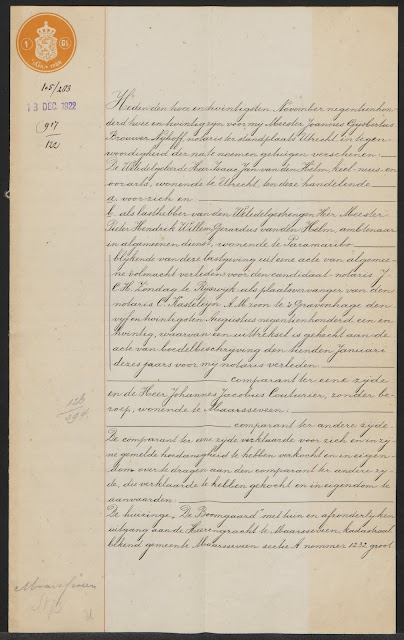 1 Gl
105/283
13 DEC 1922
917
122
Heden den twee en twintigsten November negentienhon-
derd twee en twintig zijn voor mij Meester Joannes Gijsbertus
Brouwer Nijhoff, notaris ter standplaats Utrecht, in tegen-
woordigheid der na te noemen getuigen verschenen:
De WelEdelgeleerde Heer Isaac Jan van den Helm, keel-neus-en
oorarts, wonende te Utrecht, ten deze handelende
a. voor zich en
b. als lasthebber van den WelEdelgestrengen Heer Meester
Pieter Hendrik Willem Gerardus van den Helm, ambtenaar
in algemeenen dienst, wonende te Paramaribo
blijkende van deze lastgeving uit eene acte van algemee-
ne volmacht verleden voor den candidaat notaris J.
C. H. Zondag te Rijswijk als plaatsvervanger van den
notaris C. Kasteleyn A.M.zoon te 's Gravenhage den
vijf en twintigsten Augustus negentienhonderd een en
twintig, waarvan een uittreksel is gehecht aan de
acte van boedelbeschrijving den tienden Januari
dezes jaars voor mij notaris verleden
comparant ter eene zijde
en de Heer Johannes Jacobus Couturier, zonder be-
roep, wonende te Maarsseveen
comparant ter andere zijde
De comparant ter eene zijde verklaarde voor zich en in zij-
ne gemelde hoedanigheid te hebben verkocht en in eigen-
dom over te dragen aan den comparant ter andere zij-
de, die verklaarde te hebben gekocht en in eigendom te
aanvaarden:
De huizinge "De Boomgaard" met tuin en afzonderlijken
uitgang aan de Heerengracht te Maarsseveen, kadastraal
bekend gemeente Maarsseveen sectie A nommer 1232, groot
126
294
Maarsseveen